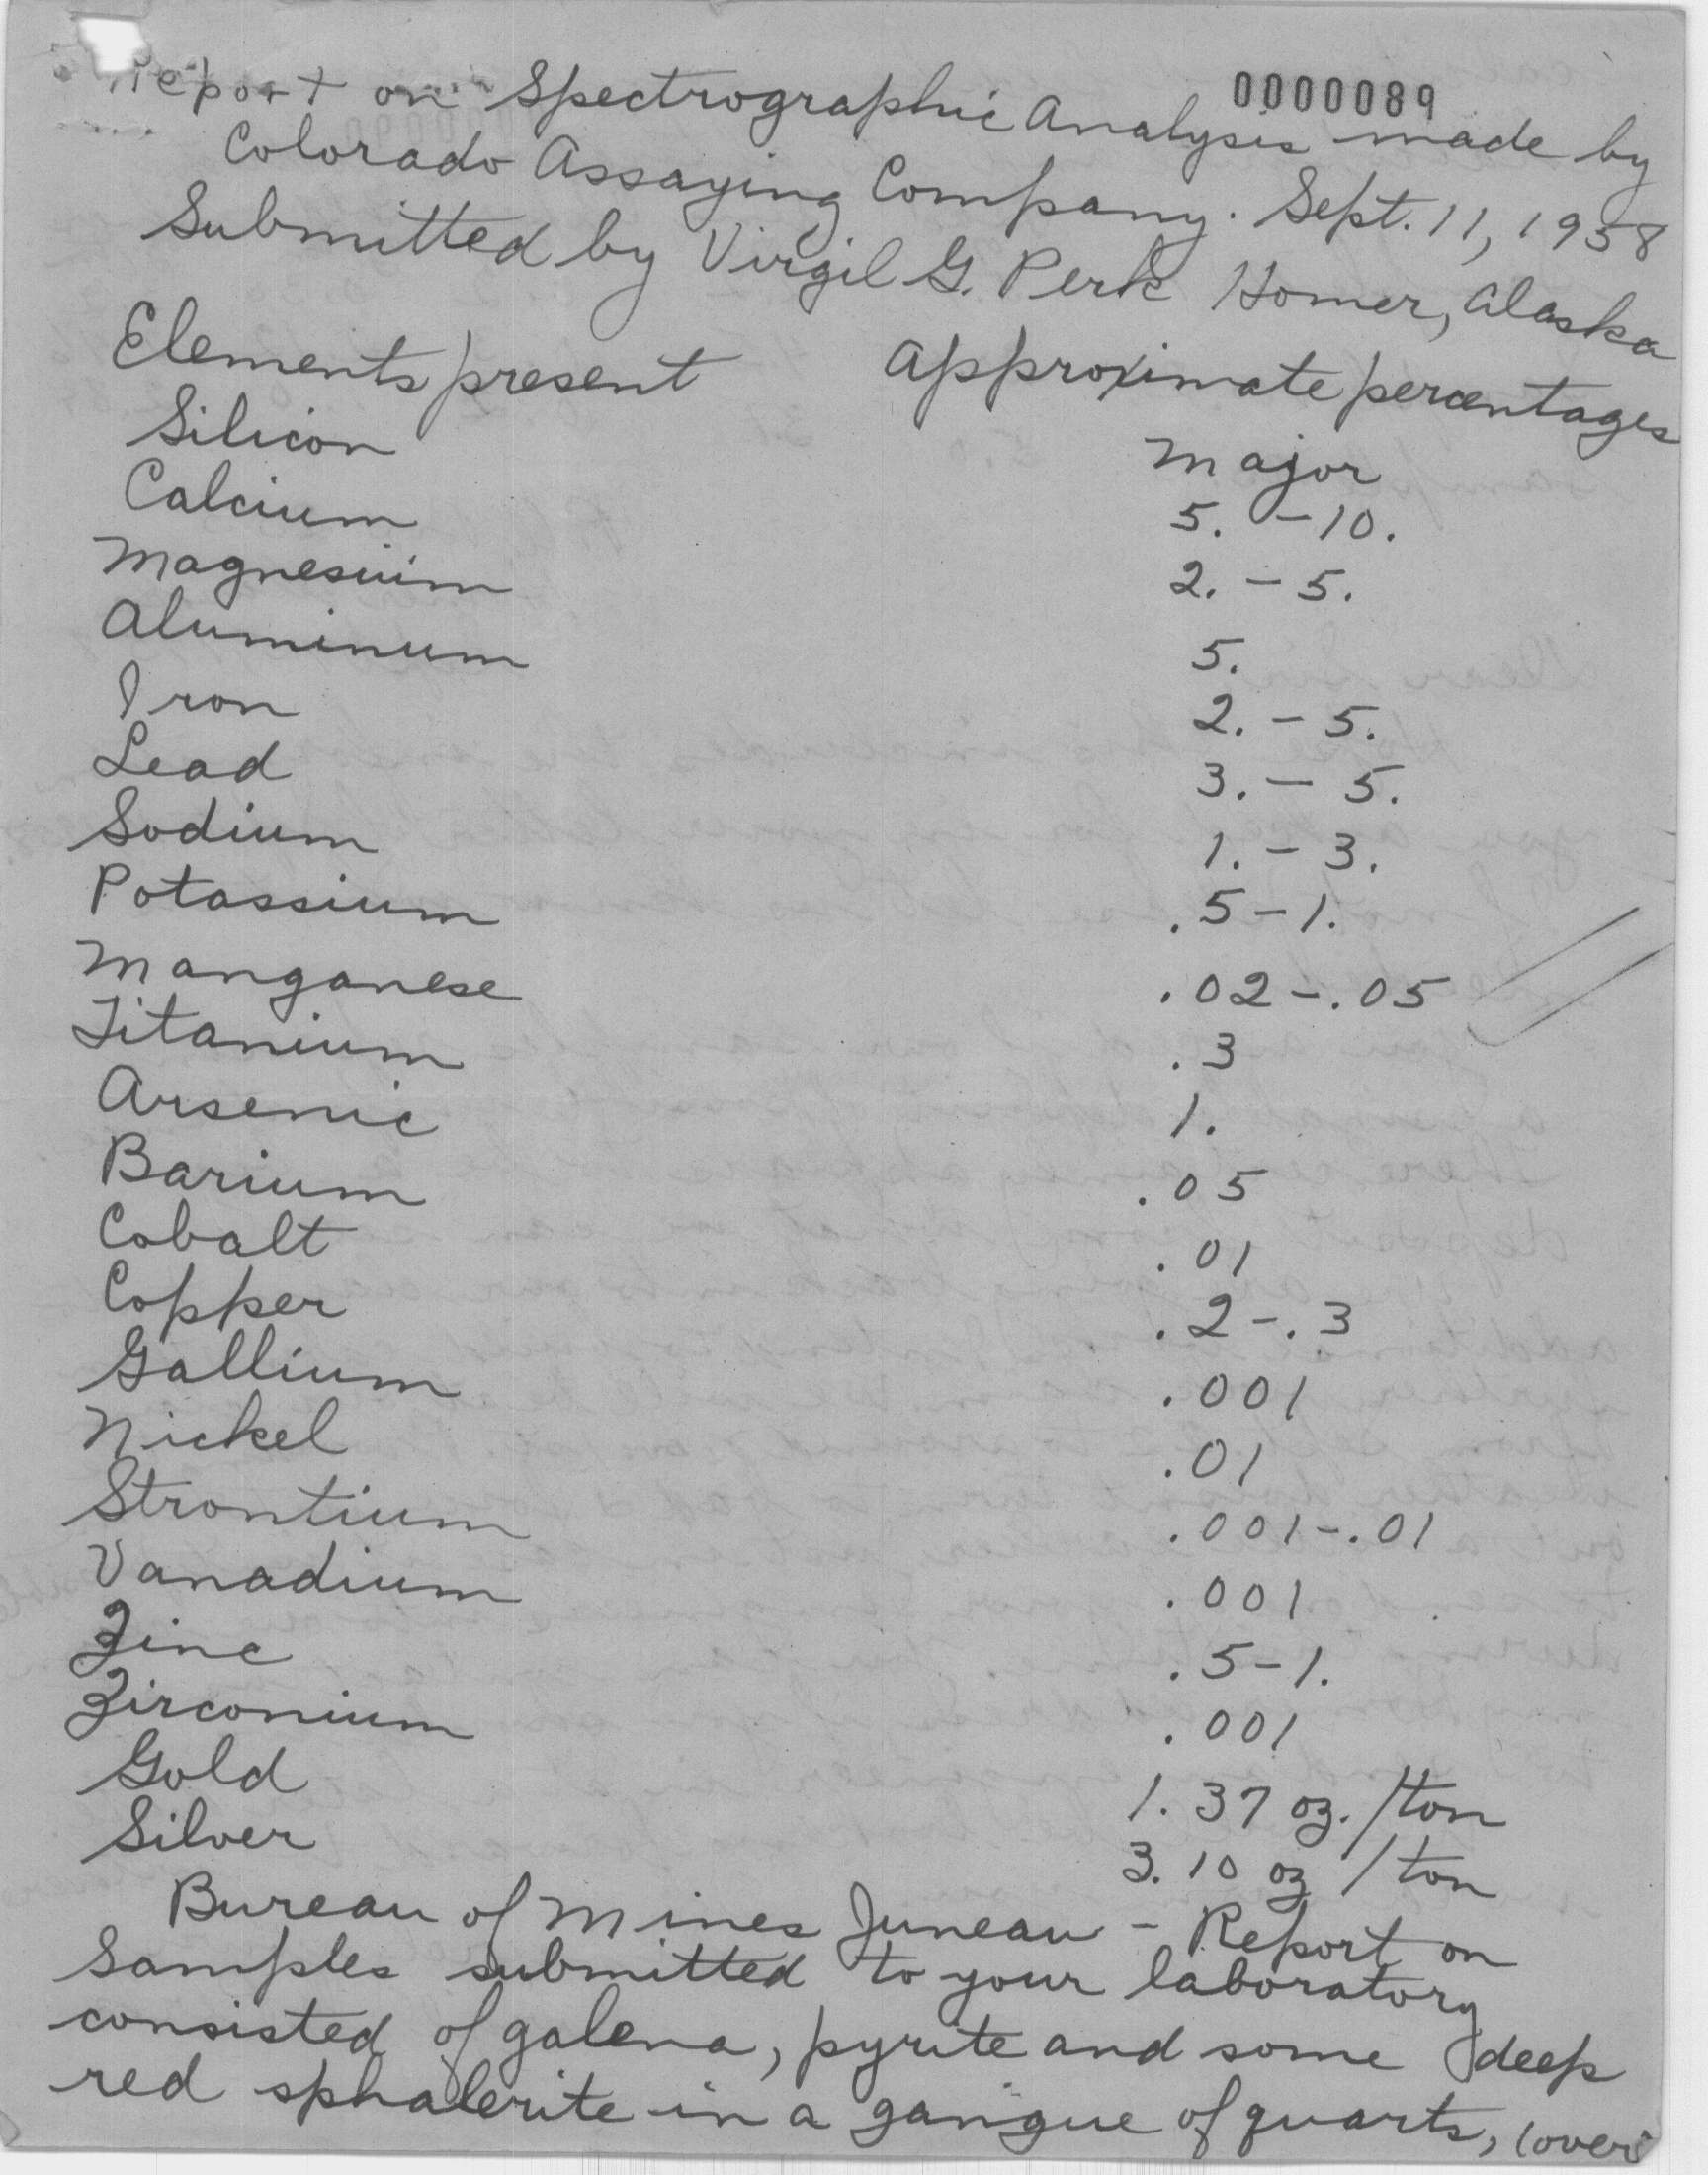 0000089
Report on Spectrographic Analysis made by
Colorado Assaying Company. Sept. 11, 1958
Submitted by Virgil G. Perk Homer, Alaska
Elements present Approximate percentages
Silicon Major
Calcium 5. - 10.
Magnesium 2. - 5.
Aluminum 5.
Iron 2. - 5.
Lead 3. - 5.
Sodium 1. - 3.
Potassium .5 - 1.
Manganese .02 - .05
Titanium .3
Arsenic 1.
Barium .05
Cobalt .01
Copper .2 - .3
Gallium .001
Nickel .01
Strontium .001 - .01
Vanadium .001
Zinc .5 - 1.
Zirconium .001
Gold 1.37 oz./ton
Silver 3.10 oz /ton
Bureau of Mines Juneau - Report on
samples submitted to your laboratory
consisted of galena, pyrite and some deep
red sphalerite in a gangue of quarts, (over)